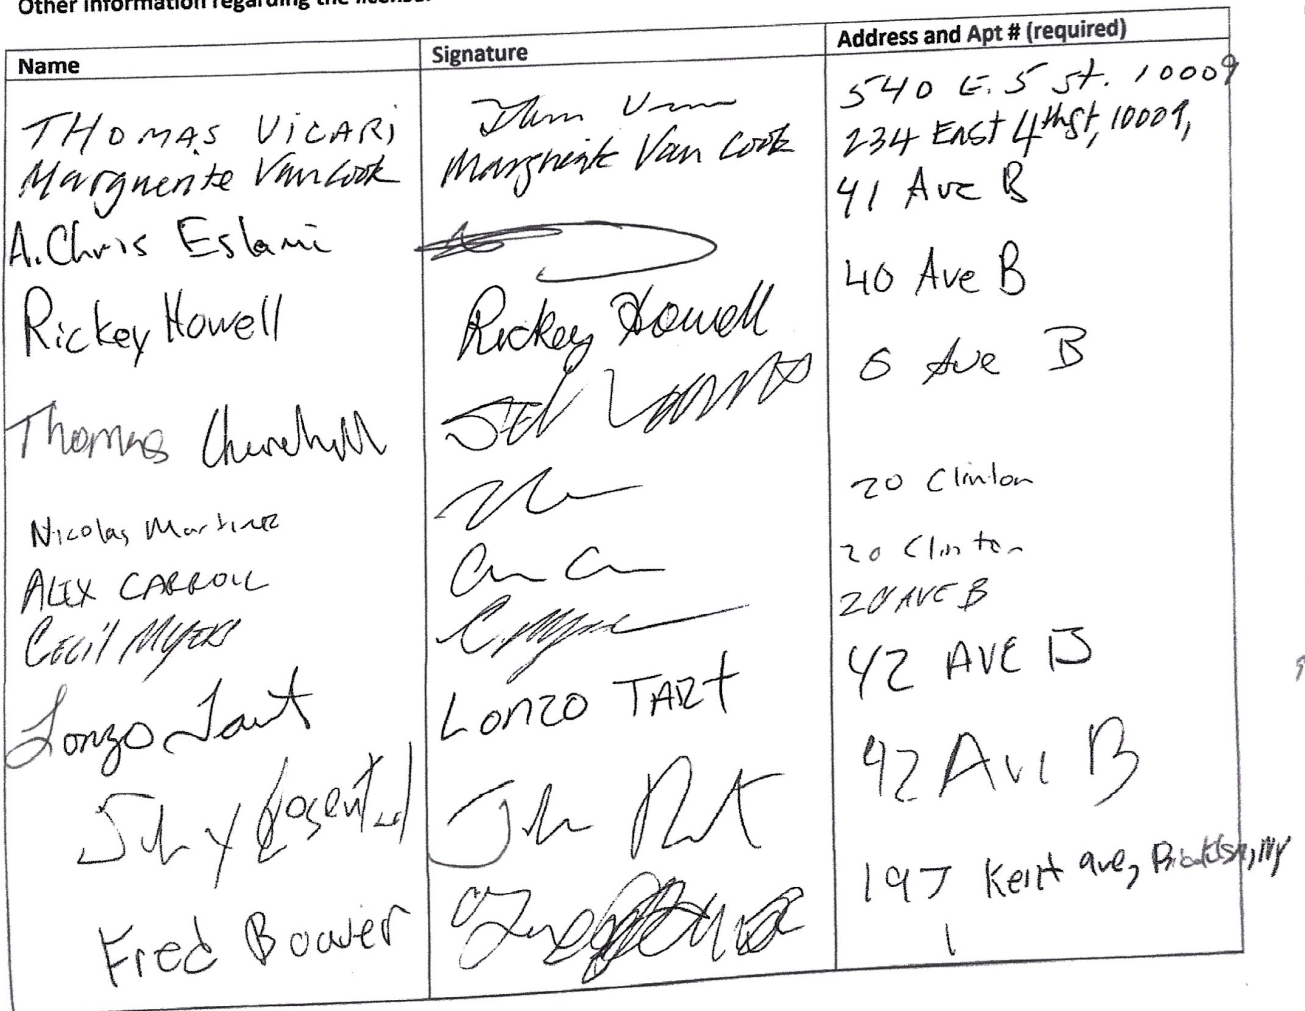 Other information regarding the
Name Signature Address and Apt # (required)
THOMAS VICARI 540 E. 5 st. 10009
Marguerite VanCook Marguerite Van Cook 234 East 4th St, 10009,
A. Chris Eslami 41 Ave B
Rickey Howell Rickey Howell 40 Ave B
Thomas Churchill 6 Ave B
Nicolas Martinez 20 Clinton
ALEX CARROLL 20 Clinton
CECIL MYERS 20 AVE B
Lonzo Tart LONZO TART 42 AVE B
Rosental 42 Ave B
Fred Bower 197 Kent ave, Brooklyn, NY